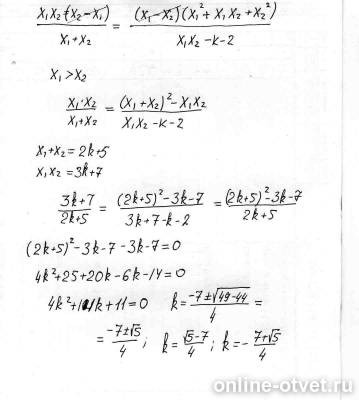 x₁x₂·(x₂-x₁)/(x₁+x₂) = (x₁-x₂)(x₁²+x₁x₂+x₂²)/(x₁x₂-k-2)
x₁>x₂
x₁·x₂/(x₁+x₂) = ((x₁+x₂)²-x₁x₂)/(x₁x₂-k-2)
x₁+x₂=2k+5
x₁x₂=3k+7
(3k+7)/(2k+5) = ((2k+5)²-3k-7)/(3k+7-k-2) = ((2k+5)²-3k-7)/(2k+5)
(2k+5)²-3k-7-3k-7=0
4k²+25+20k-6k-14=0
4k²+14k+11=0 k=(-7±√(49-44))/4 =
= (-7±√5)/4; k=(√5-7)/4; k=-(7+√5)/4
online-otvet.ru